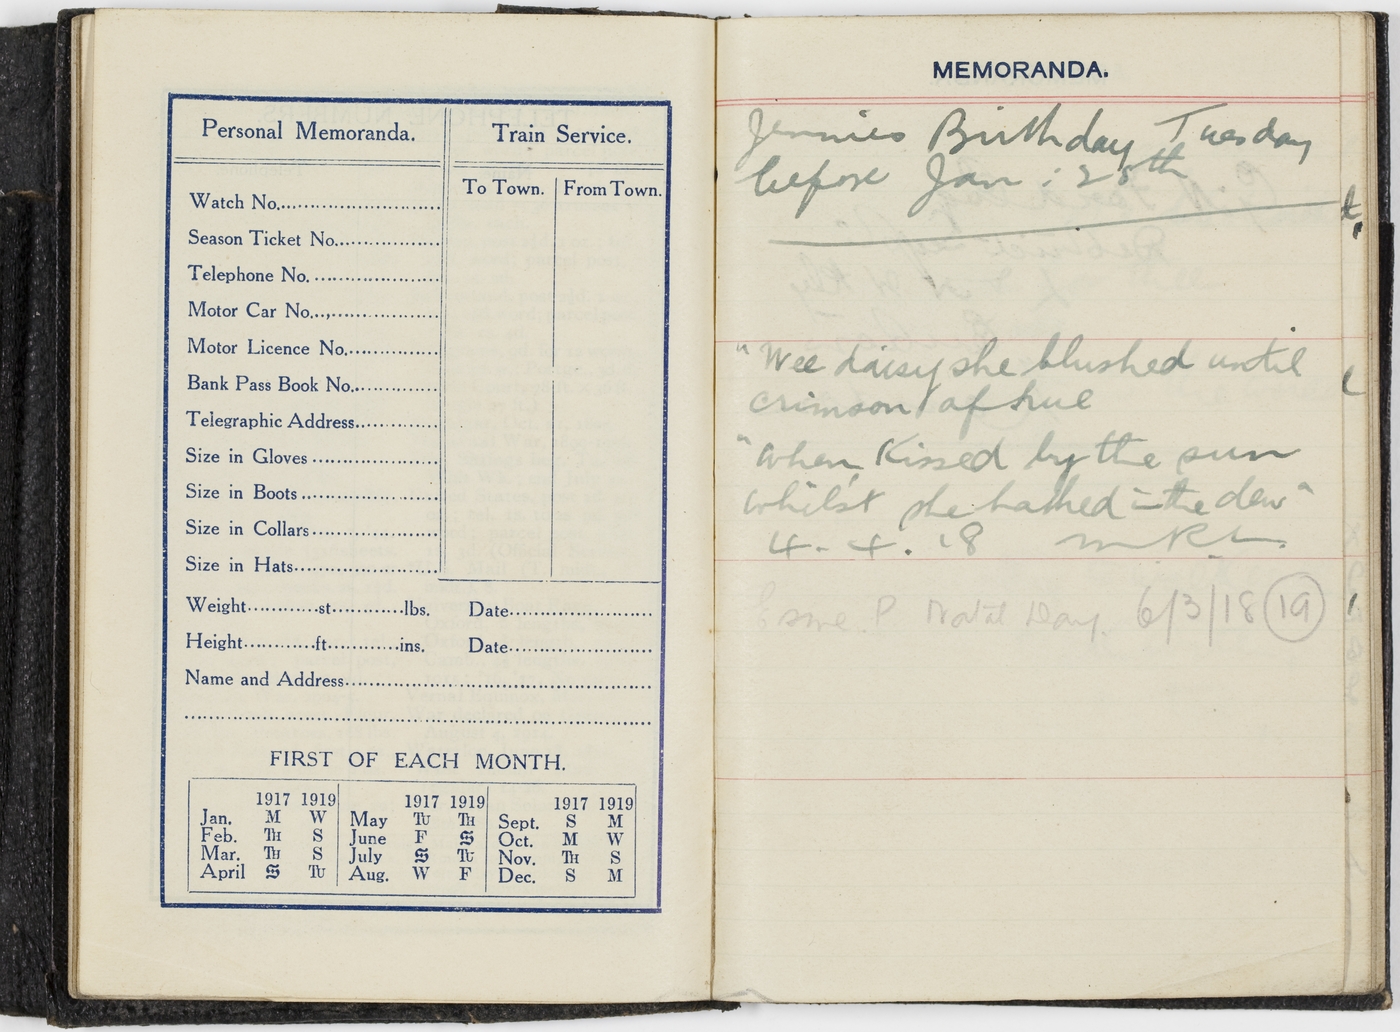 Personal Memoranda.
Train Service.
To Town. From Town.
Watch No.
Season Ticket No.
Telephone No.
Motor Car No.
Motor Licence No.
Bank Pass Book No.
Telegraphic Address
Size in Gloves
Size in Boots
Size in Collars
Size in Hats
Weight st lbs. Date
Height ft ins. Date
Name and Address
FIRST OF EACH MONTH.
1917 1919 1917 1919 1917 1919
Jan. M W May TU TH Sept. S M
Feb. TH S June F S Oct. M W
Mar. TH S July S TU Nov. TH S
April S TU Aug. W F Dec. S M
MEMORANDA.
Jennies Birthday Tuesday
before Jan: 28th
"Wee daisy she blushed until
crimson of hue
"When Kissed by the sun
whilst she bathed in the dew"
4.4.18
P. Natal Day. 6/3/18 19